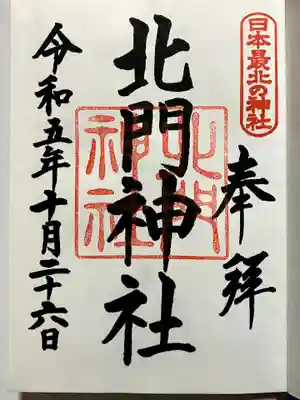 日本最北の神社
奉拝
北門神社
北門神社
令和五年十月二十六日